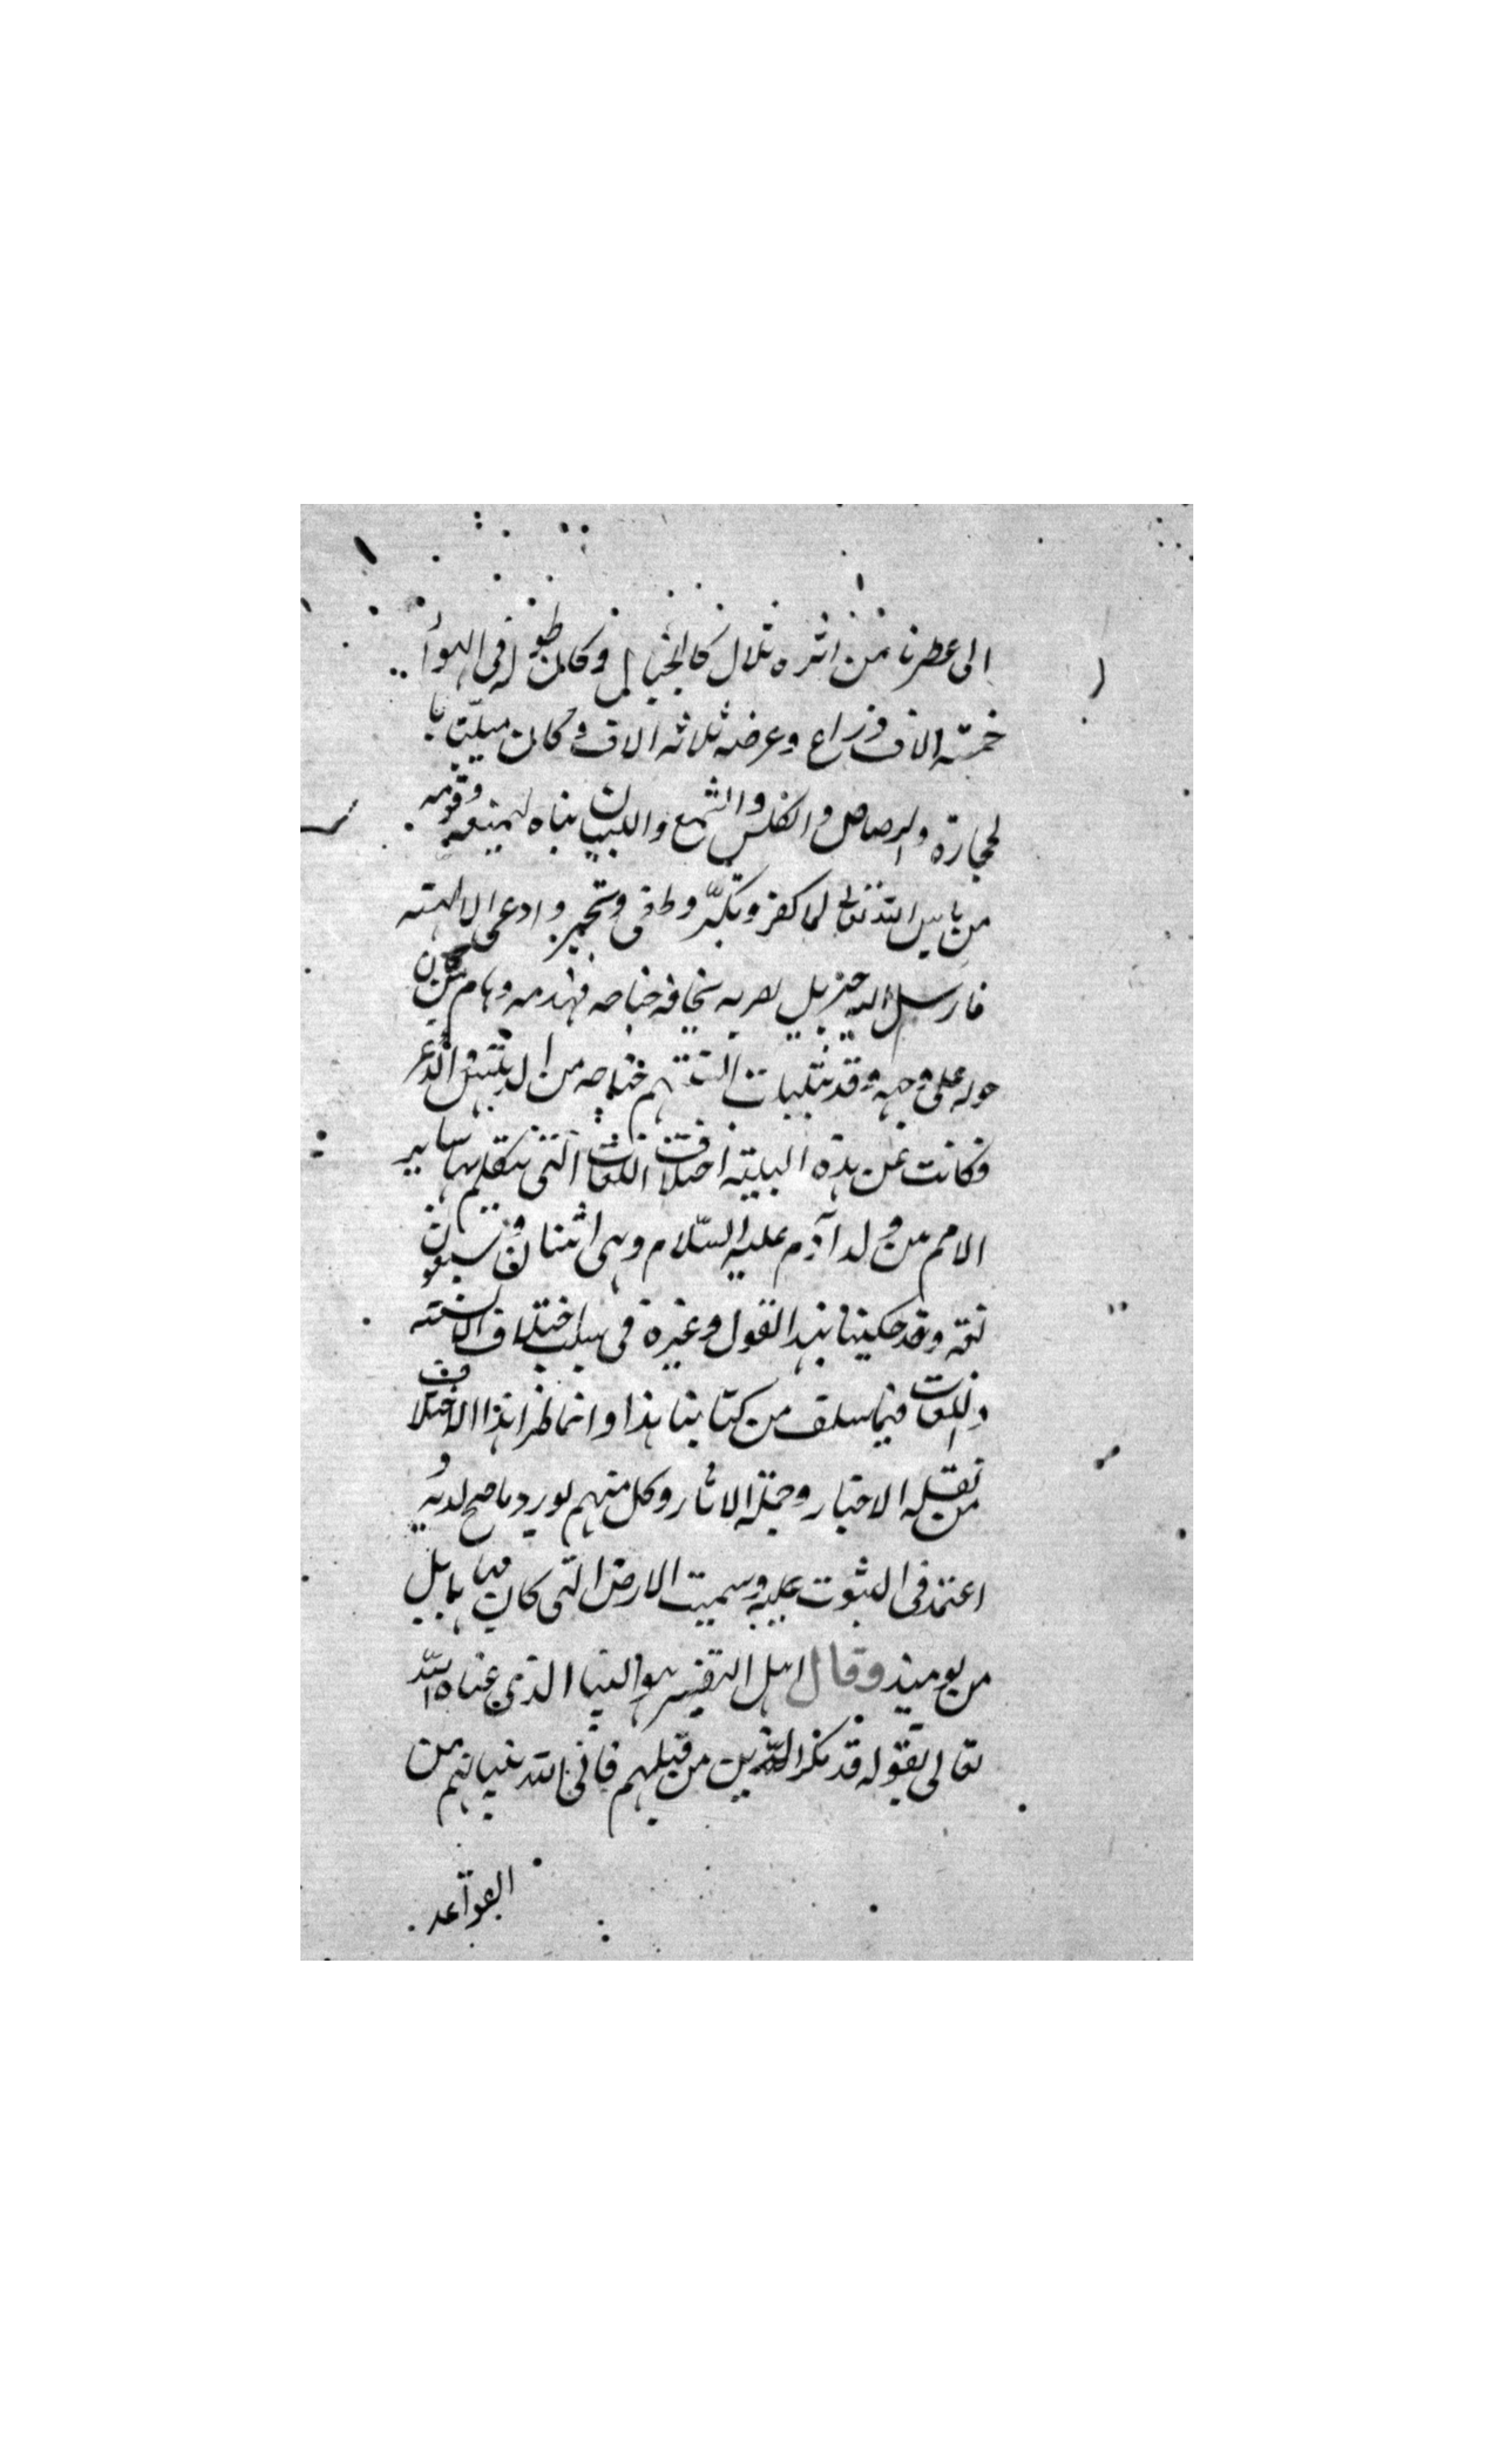 الى عصرنا من اثره تلال كالجبال وكان طوله فى الهوأ
خمسة الاف ذراع وعرضه ثلاثه الاف وكان مبنيا با
لحجارة والرصاص والكلس والشمع واللبان بناه ليمنعه وقومه
من باس الله تعالى لما كفر وتكبّر وطغى وتجبر وادعى الالهته
فارسل اليه جبريل بحافه جناحه فهدمه وهام من كان
حوله على وجهه وقد تبلبلت جناحه من الذعر
فكانت عن هذه البليته اختلاف اللغات التى تتكلم بها ساير
الامم من ولد آدم عليه السّلام وهى اثنان وسبعون
لغه وقد حكينا هذا القول وغيره فى سبب اختلاف الالسنته
واللغات فيما سلف من كتابنا هذا وانما طرا هذا الاختلاف
من نقله الاخبار وحملة الاثار وكل منهم يورد ما صح لديه و
اعتمد فى الثبوت عليه وسميت الارض التى كان بها بابل
من يوميذ وقال اهل التفسير هو البنيا الذى عناه الله
تعالى بقوله قد مكر الذين من قبلهم فاتى الله بنيانهم من
القواعد